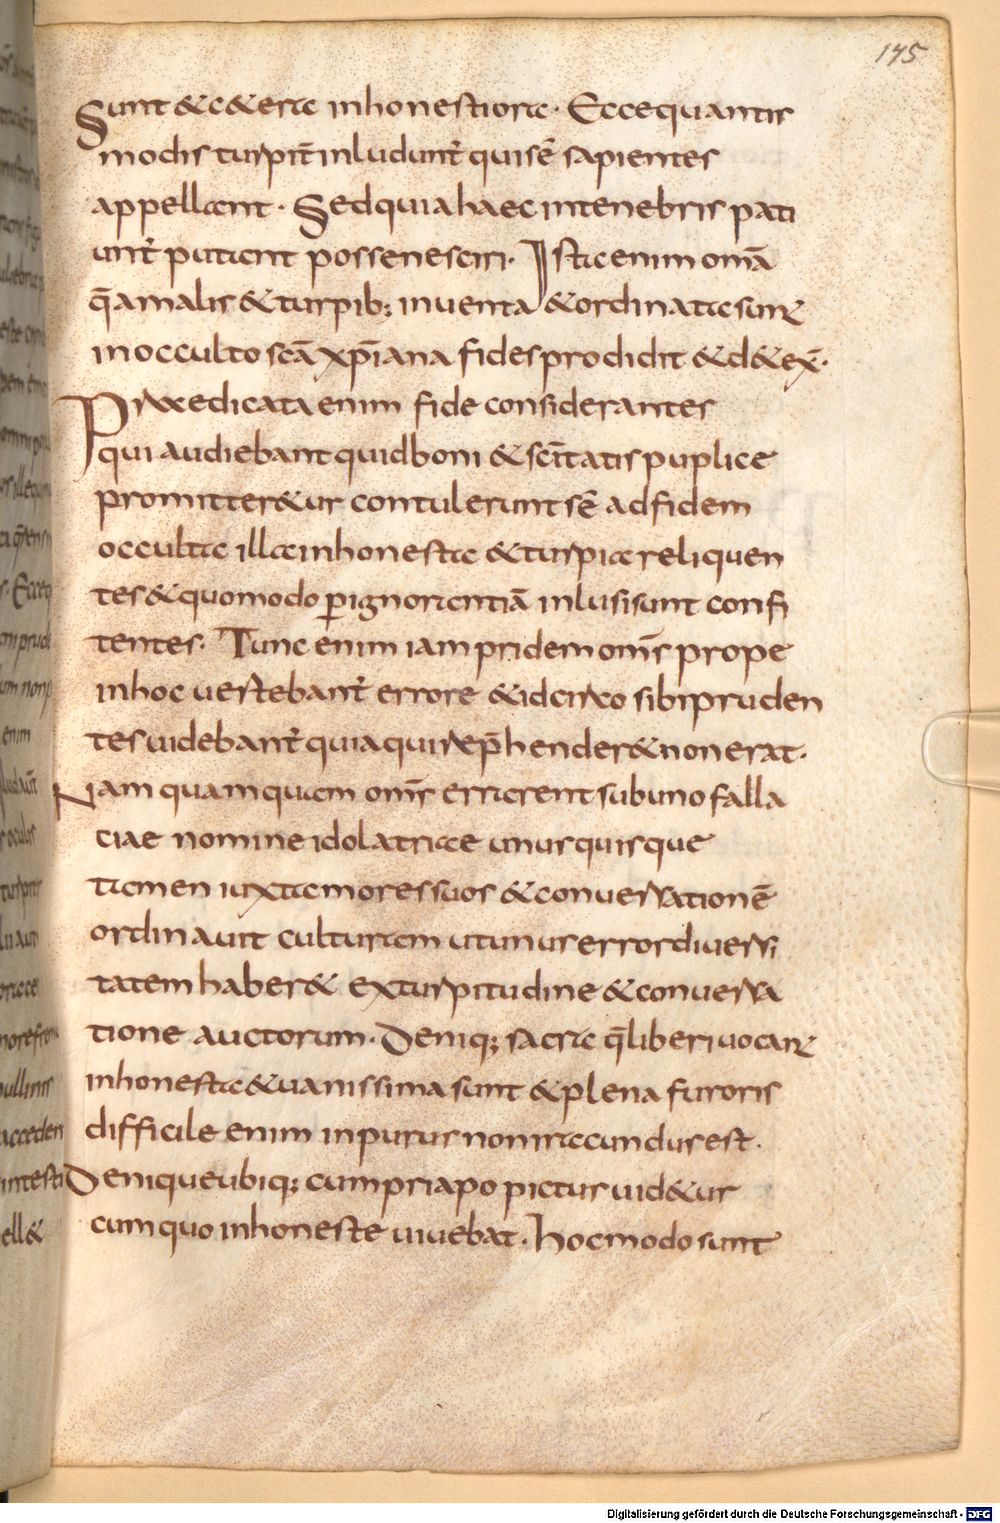 175
Sunt & c&era inhonestiora. Ecce quantis
modis turpit̄ inludunt᷑ qui sē sapientes
appellant. Sed quia haec in tenebris pati
unt᷑ putant posse nesciri. Ista enim om̄a
q̄ a malis & turpib; inventa & ordinata sunt
in occulto sc̄a xp̄iana fides prodidit & d&ex̄.
Praedicata enim fide considerantes
qui audiebant quid boni & sc̄itatis puplice
promitter&ur contulerunt sē ad fidem
occulta illa inhonesta & turpia reliquen
tes & quomodo ꝑ ignorantiā inlusi sunt confi
tentes. Tunc enim iam pridem om̄s prope
in hoc uestebant᷑ errore & idcirco sibi pruden
tes uidebant᷑ quia qui rep̄hender& non erat.
Nam quamquam om̄s errarent sub uno falla
ciae nomine idolatriae unusquisque
tamen iuxta mores suos & conuersationē
ordinauit culturam ut unus error diuersi
tatem haber& ex turpitudine & conuersa
tione auctorum. Deniq; sacra q̄ liberi uocant
inhonesta & uanissima sunt & plena furoris
difficile enim inpurus non iracundus est.
Denique ubiq; cum priapo pictus uid&ur
cum quo inhoneste uiuebat. hoc modo sunt
Digitalisierung gefördert durch die Deutsche Forschungsgemeinschaft - DFG